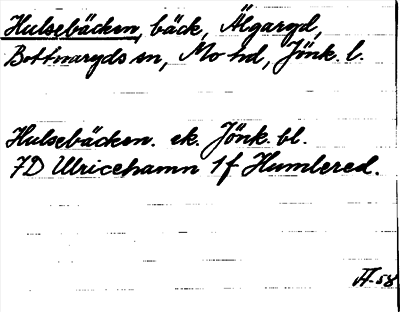 Hulsebäcken, bäck, Älgaryd,
Bottnaryds sn, Mo hd, Jönk. l.
Hulsebäcken. ek. Jönk. bl.
7D Ulricehamn 1f Humlered.
A-58